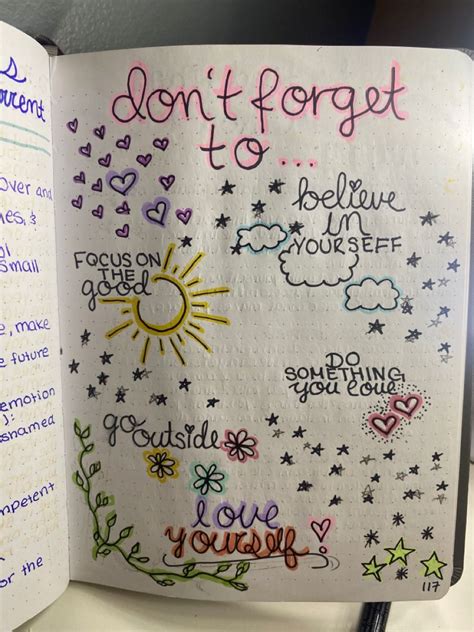 s
rrent
over and
small
, make
e future
emotion
):
snamed
mpetent
or the
don't forget
to...
believe
in
YOURSEFF
FOCUS ON
THE
good
DO
SOMETHING
you love
go outside
love
yourself!
117